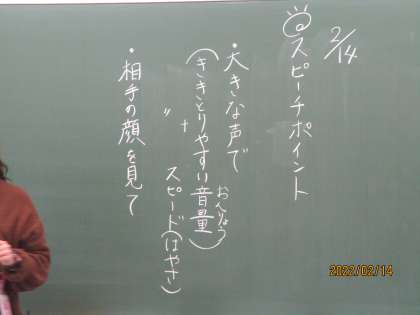 2/14
スピーチポイント
・大きな声で
(ききとりやすい音量)
おんりょう
+
〃 スピード(はやさ)
・相手の顔を見て
2022/02/14